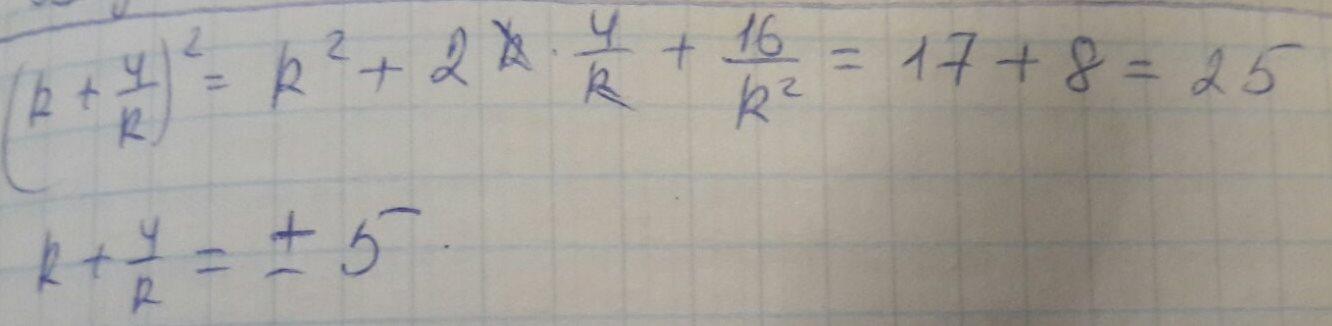 (k + 4/k)² = k² + 2k · 4/k + 16/k² = 17 + 8 = 25
k + 4/k = ± 5